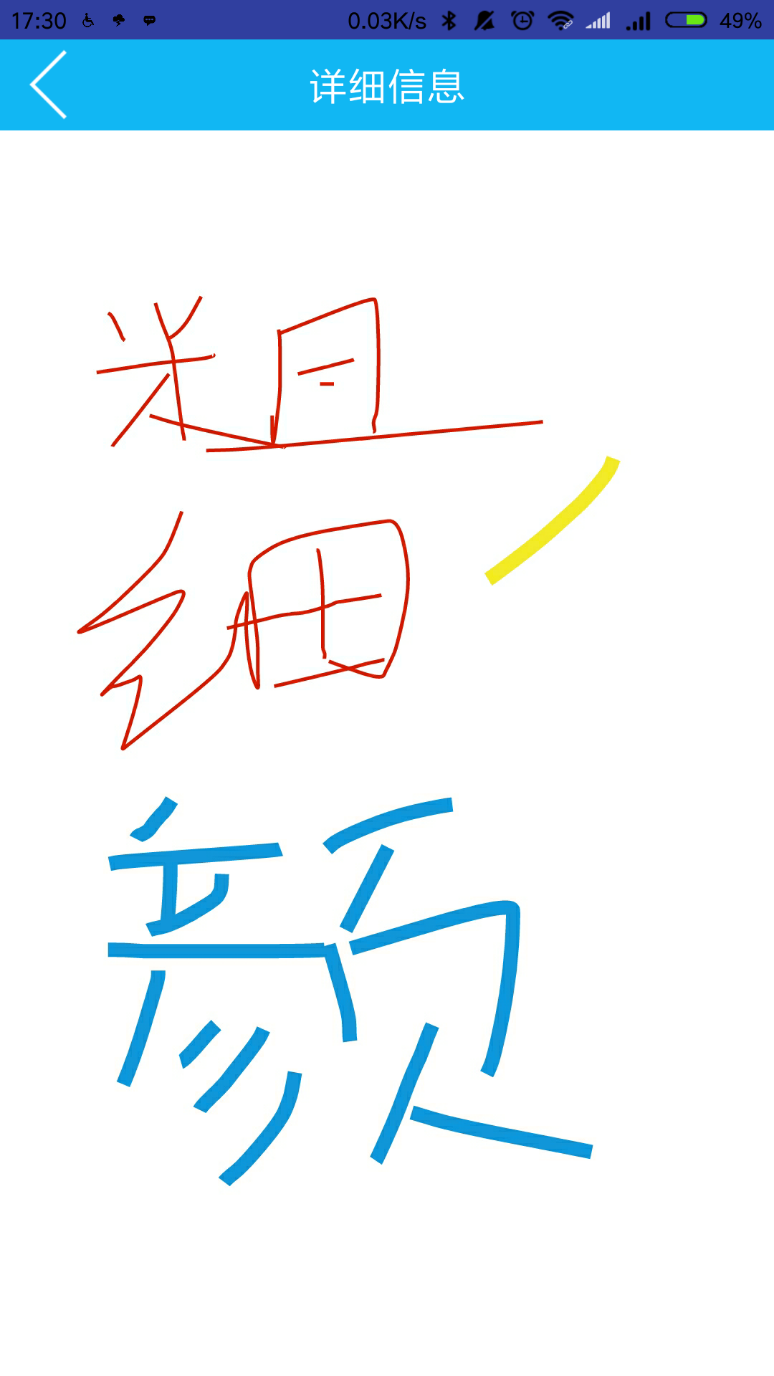 17:30 0.03K/s 49%
详细信息
粗
细
颜